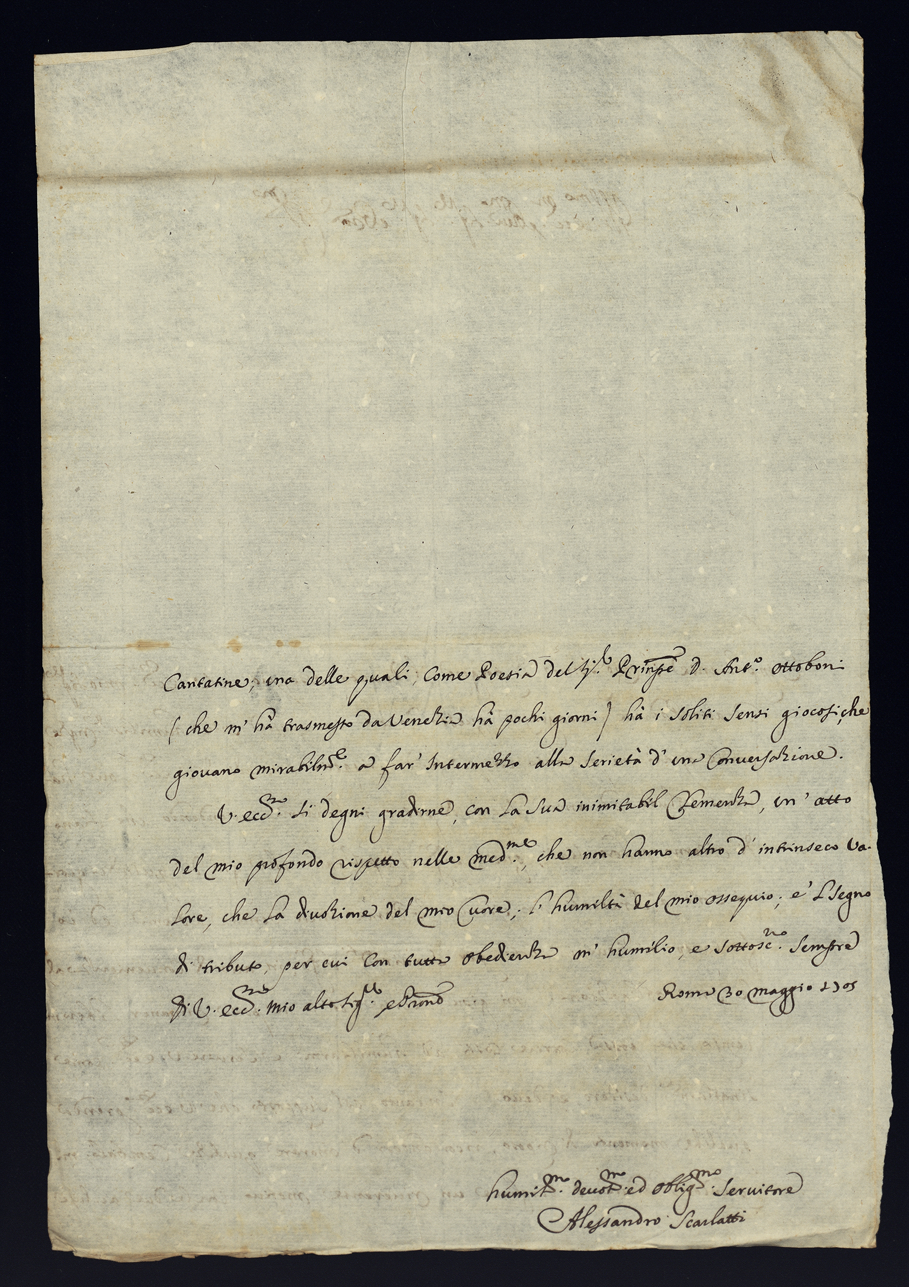 Cantatine; una delle quali, come Poesia del Sig.r Prinpe D. Ant.o Ottoboni
(che m'hà trasmesso da Venezia hà pochi giorni) hà i soliti sensi giocosi, che
giovano mirabilm.e a far' Intermezzo alla serietà d'una Conversazione.
V. ecc.za si degni gradirne, con la sua inimitabil Clemenza, un' atto
del mio profondo rispetto nelle med.me, che non hanno altro d'intrinseco va-
lore, che la divozione del mio Cuore; l'humiltà del mio ossequio; e 'l segno
di tributo, per cui con tutta obedienza m'humilio, e sottosc.vo sempre
di V. ecc.za mio alto Sig.re e Prone
Roma 30 maggio 1705
humil.mo devot.mo ed oblig.mo servitore
Alessandro Scarlatti